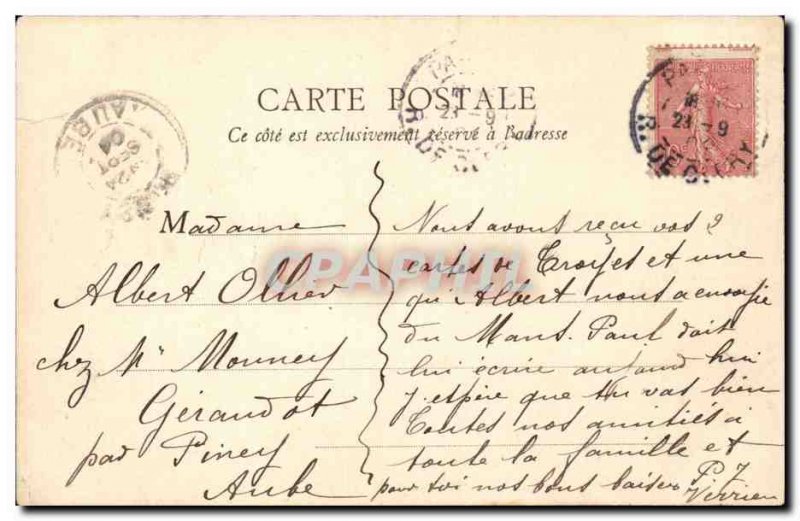 CARTE POSTALE
Ce côté est exclusivement réservé à l'adresse
PA
23 - 9
R. DE CL
PA
23 - 9
R. DE C RY
AUBE
24
SEPT
04
CPAPHIL
Madame
Albert Ollier
chez Mr Monney
Géraudot
par Piney
Aube
Nous avons reçu vos 2
cartes de Troyes et une
qu'Albert nous a envoyée
du Mans. Paul doit
lui écrire aujourd hui
J espère que tu vas bien
Toutes nos amitiés à
toute la famille et
pour toi nos bons baisers P J
Verrien